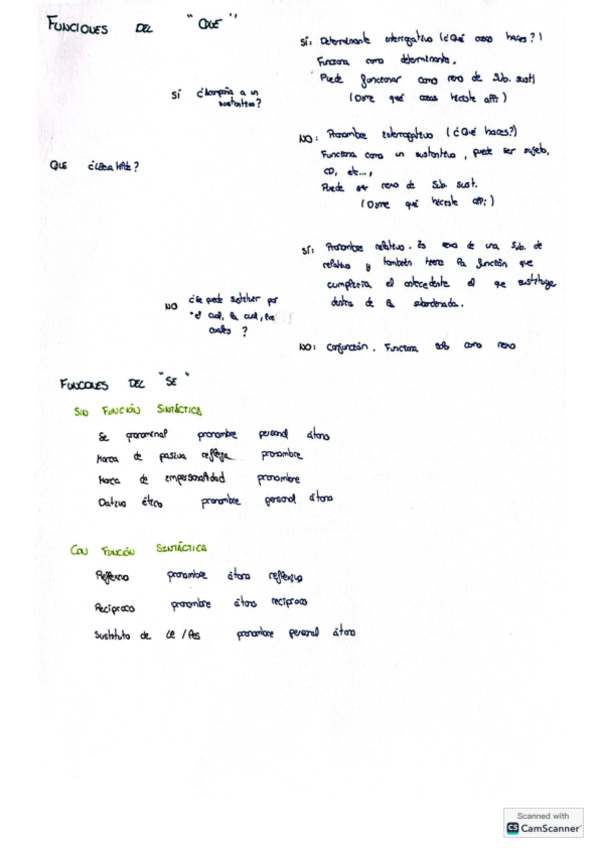 FUNCIONES DEL "QUE"
SÍ: Determinante interrogativo (¿Qué cosas haces?)
Funciona como determinante.
Puede funcionar como nexo de Sub. sust
(Dime qué cosas hiciste allí)
SÍ ¿Acompaña a un
sustantivo?
NO: Pronombre interrogativo (¿Qué haces?)
Funciona como un sustantivo, puede ser sujeto,
CD, etc...,
Puede ser nexo de Sub. sust.
(Dime qué hiciste allí)
QUE ¿Lleva tilde?
SÍ: Pronombre relativo. Es nexo de una Sub. de
relativo y también tiene la función que
cumpliría el antecedente al que sustituye
dentro de la subordinada.
NO ¿Se puede sustituir por
"el cual, la cual, los
cuales"?
NO: Conjunción. Funciona solo como nexo
FUNCIONES DEL "SE"
SIN FUNCIÓN SINTÁCTICA
Se pronominal pronombre personal átono
Marca de pasiva refleja pronombre
Marca de impersonalidad pronombre
Dativo ético pronombre personal átono
CON FUNCIÓN SINTÁCTICA
Reflexivo pronombre átono reflexivo
Recíproco pronombre átono recíproco
Sustituto de le/les pronombre personal átono
Scanned with
CS CamScanner